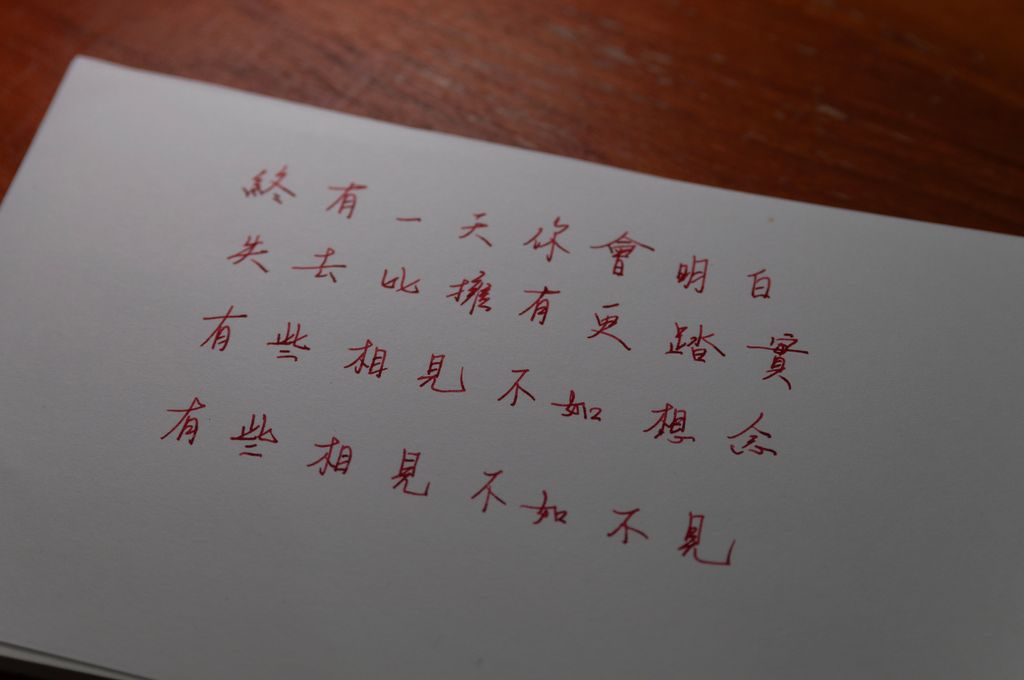 終有一天你會明白
失去比擁有更踏實
有些相見不如想念
有些相見不如不見